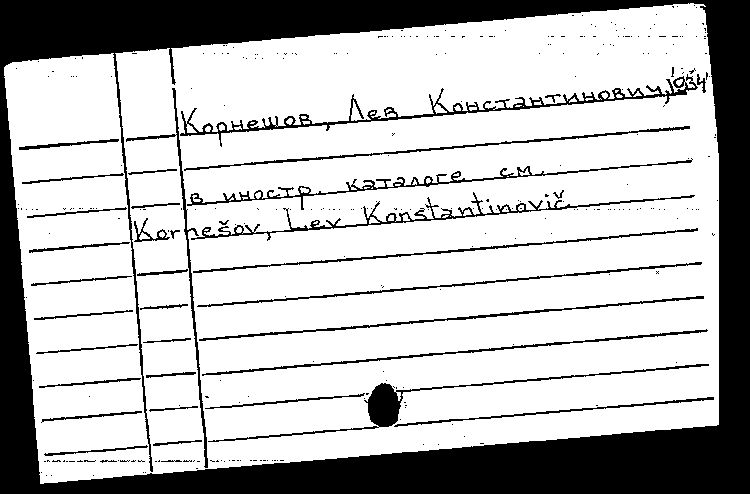 Корнешов, Лев Константинович, 1934
в иностр. каталоге см.
Kornešov, Lev Konstantinovič